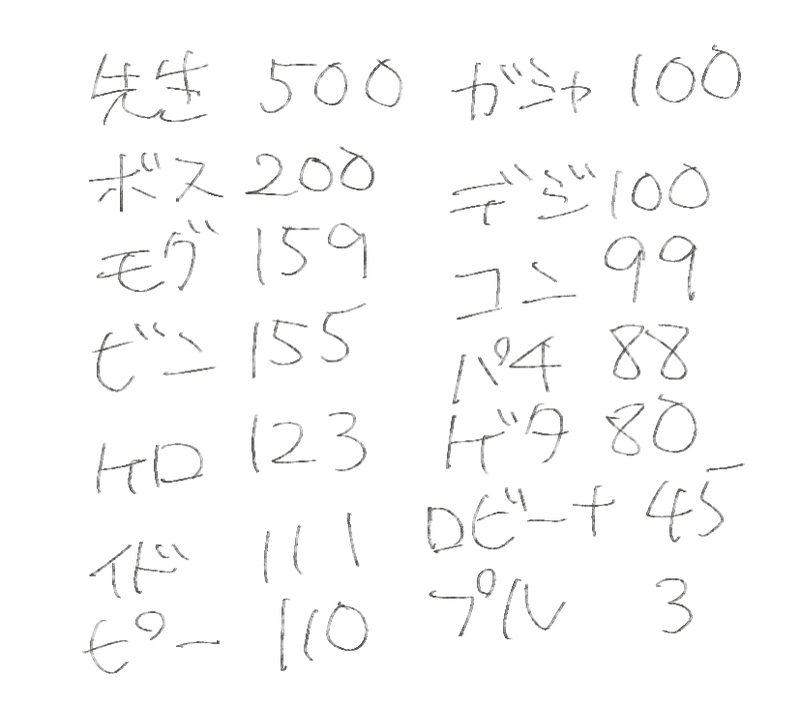 先き 500
ボス 200
モグ 159
ビン 155
ケロ 123
イド 111
ピー 110
ガシャ 100
デジ 100
コン 99
パチ 88
ゲタ 80
ロビーナ 45
プル 3